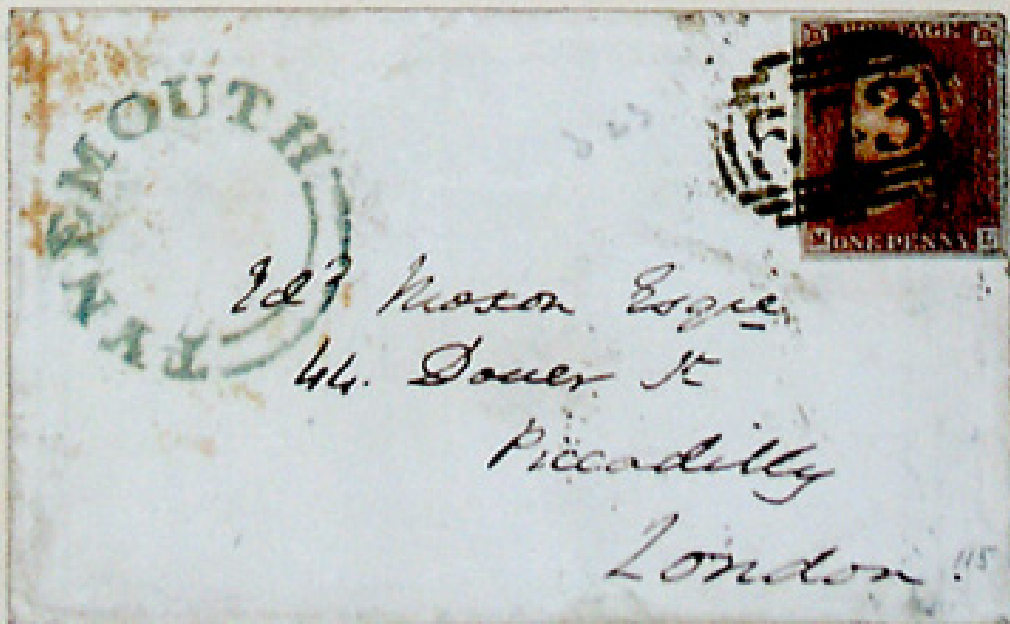 TYNEMOUTH
POSTAGE
573
ONE PENNY
Edd Moxon Esqre
44. Dover St
Piccadilly
London.
115